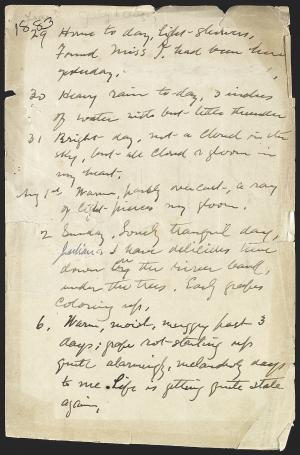 1883
29 Home to day, light showers,
Found Miss T. had been here
yesterday.
30 Heavy rain to-day, 3 inches
of water with but little thunder
31 Bright day, not a cloud in the
sky, but all cloud & gloom in
my heart.
Aug 1st Warm, partly overcast, a ray
of light pierces my gloom.
2 Sunday, Lovely tranquil day,
Julian & I have delicious time
down by the river bank,
under the trees. Early grapes
coloring up,
6. Warm, moist, muggy past 3
days; grape rot starting up
quite alarmingly, melancholy days
to me. Life is getting quite stale
again,